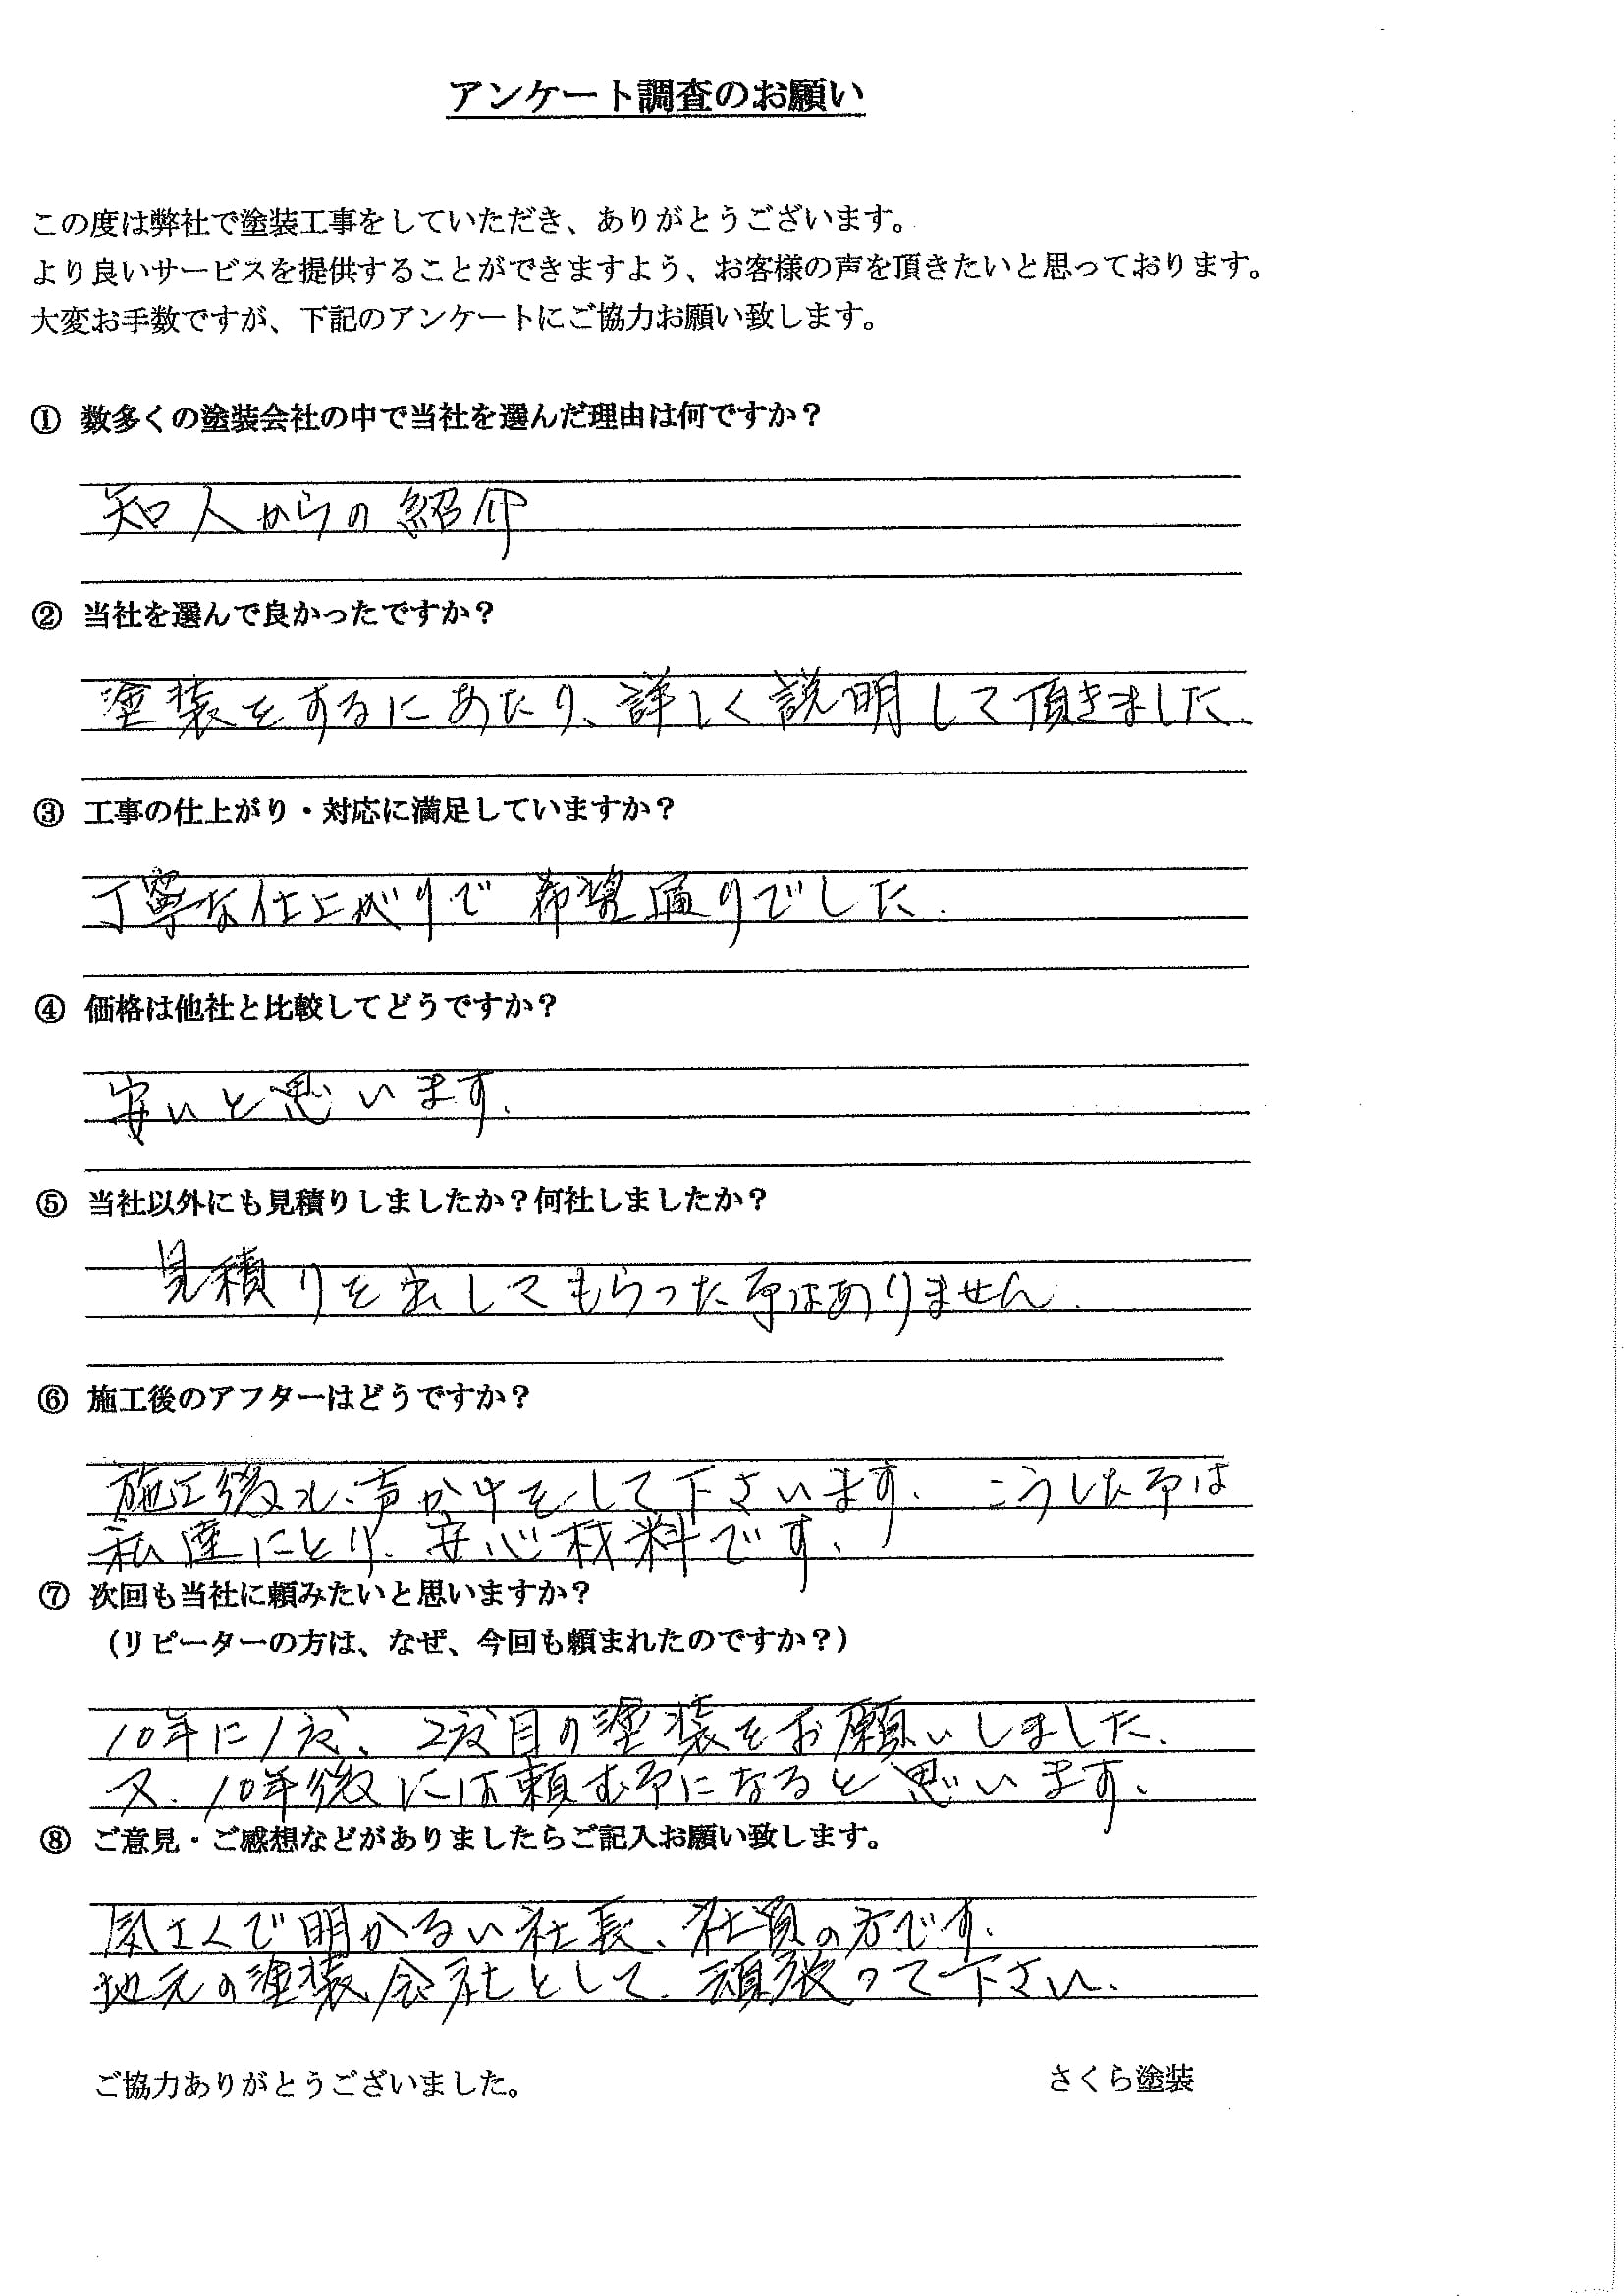 アンケート調査のお願い
この度は弊社で塗装工事をしていただき、ありがとうございます。
より良いサービスを提供することができますよう、お客様の声を頂きたいと思っております。
大変お手数ですが、下記のアンケートにご協力お願い致します。
① 数多くの塗装会社の中で当社を選んだ理由は何ですか？
知人からの紹介
② 当社を選んで良かったですか？
塗装をするにあたり、詳しく説明して頂きました。
③ 工事の仕上がり・対応に満足していますか？
丁寧な仕上がりで希望通りでした。
④ 価格は他社と比較してどうですか？
安いと思います。
⑤ 当社以外にも見積りしましたか？何社しましたか？
見積りを出してもらった事はありません。
⑥ 施工後のアフターはどうですか？
施工後も、声かけをして下さいます。こうした事は
私達にとり、安心材料です。
⑦ 次回も当社に頼みたいと思いますか？
（リピーターの方は、なぜ、今回も頼まれたのですか？）
10年に1度、2度目の塗装をお願いしました。
又、10年後には頼む事になると思います。
⑧ ご意見・ご感想などがありましたらご記入お願い致します。
気さくで明かるい社長、社員の方です。
地元の塗装会社として、頑張って下さい。
ご協力ありがとうございました。
さくら塗装